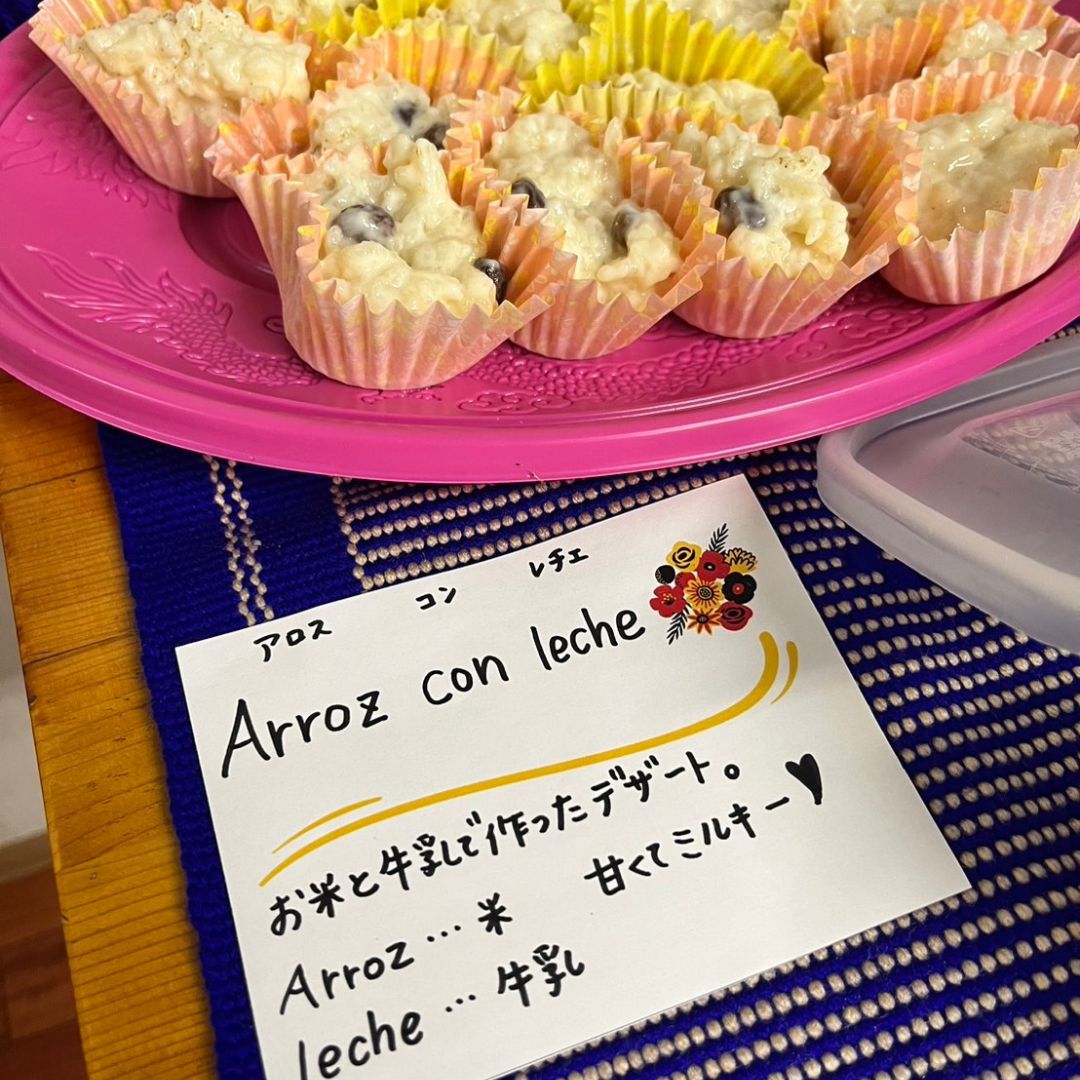 アロス コン レチェ
Arroz con leche
お米と牛乳で作ったデザート。
甘くてミルキー♥
Arroz … 米
leche … 牛乳